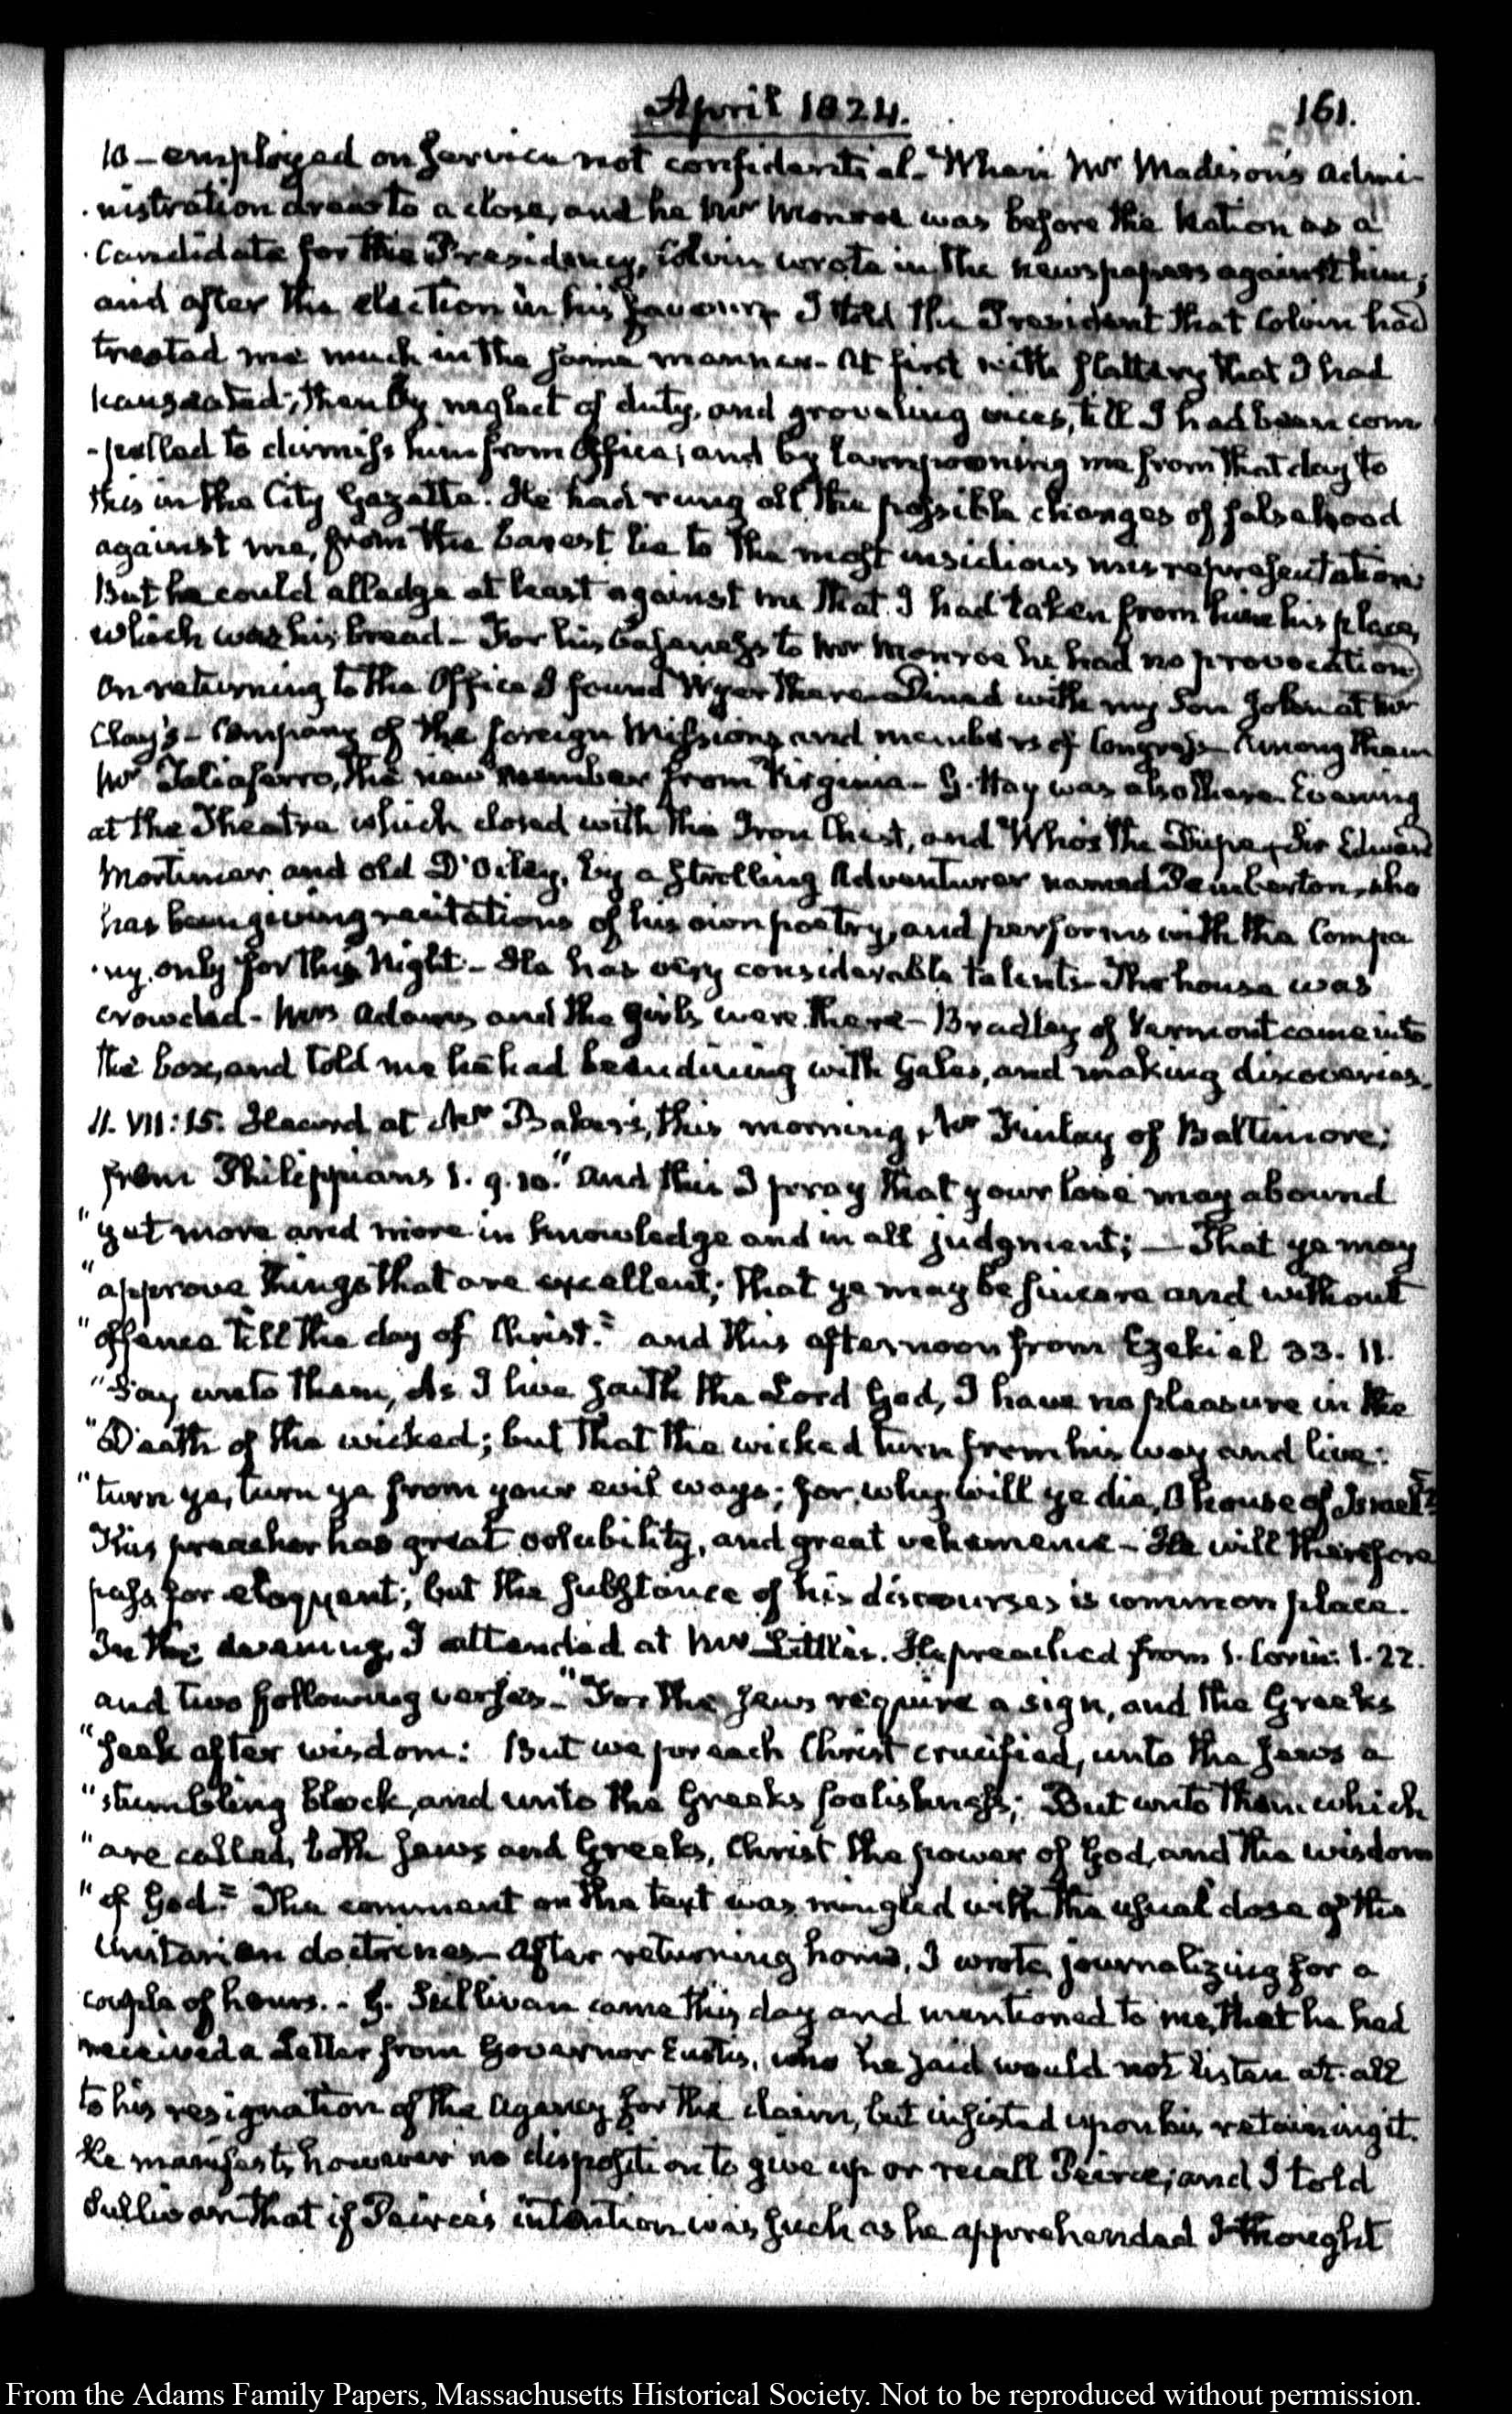 April 1824.
161.
10 – employed on service not confidential. When Mr Madison's admi-
nistration drew to a close, and he Mr Monroe was before the Nation as a
Candidate for the Presidency, Colvin wrote in the newspapers against him;
and after the election in his favour. I told the President that Colvin had
treated me much in the same manner. At first with flattery that I had
nauseated; then by neglect of duty, and groveling vices, till I had been com
-pelled to dismiss him from Office; and by lampooning me from that day to
this in the City Gazette. He had rung all the possible changes of falsehood
against me, from the barest lie to the most insidious misrepresentation
But he could alledge at least against me that I had taken from him his place,
which was his bread – For his baseness to Mr Monroe he had no provocation
On returning to the Office I found Wyer there – Dined with my Son John at Mr
Clay's – Company of the foreign Missions and members of Congress – Among them
Mr Taliaferro, the new member from Virginia – G. Hay was also there. Evening
at the Theatre which closed with the Iron Chest, and Who's the Dupe, Sir Edward
Mortimer and old D'Oiley, by a strolling Adventurer named Pemberton, who
has been giving recitations of his own poetry, and performs with the Compa
-ny only for this Night – He has very considerable talents – The house was
crowded – Mrs Adams and the girls were there – Bradley of Vermont came into
the box, and told me he had been dining with Gales, and making discoveries.
11. VII:15. Heard at Mr Baker's, this morning, Mr Finlay of Baltimore;
from Philippians 1. 9. 10. "And this I pray that your love may abound
"yet more and more in knowledge and in all judgment; — That ye may
"approve things that are excellent; that ye may be sincere and without
"offence till the day of Christ." and this afternoon from Ezekiel 33. 11.
"Say unto them, As I live saith the Lord God, I have no pleasure in the
"Death of the wicked; but that the wicked turn from his way and live:
"turn ye, turn ye from your evil ways; for why will ye die, O house of Israel"?
This preacher has great volubility, and great vehemence – He will therefore
pass for eloquent; but the substance of his discourses is common place.
In the evening, I attended at Mr Little's. He preached from 1. Corin: 1. 22.
and two following verses – "For the Jews require a sign, and the Greeks
"seek after wisdom: But we preach Christ crucified, unto the Jews a
"stumbling block, and unto the Greeks foolishness; But unto them which
"are called, both Jews and Greeks, Christ the power of God, and the wisdom
"of God." The comment on the text was mingled with the usual dose of the
Unitarian doctrines – After returning home, I wrote journalizing for a
couple of hours. – G. Sullivan came this day and mentioned to me, that he had
received a Letter from Governor Eustis, who he said would not listen at all
to his resignation of the Agency for the claim, but insisted upon his retaining it.
He manifests however no disposition to give up or recall Peirce; and I told
Sullivan that if Peirce's intention was such as he apprehended I thought
From the Adams Family Papers, Massachusetts Historical Society. Not to be reproduced without permission.